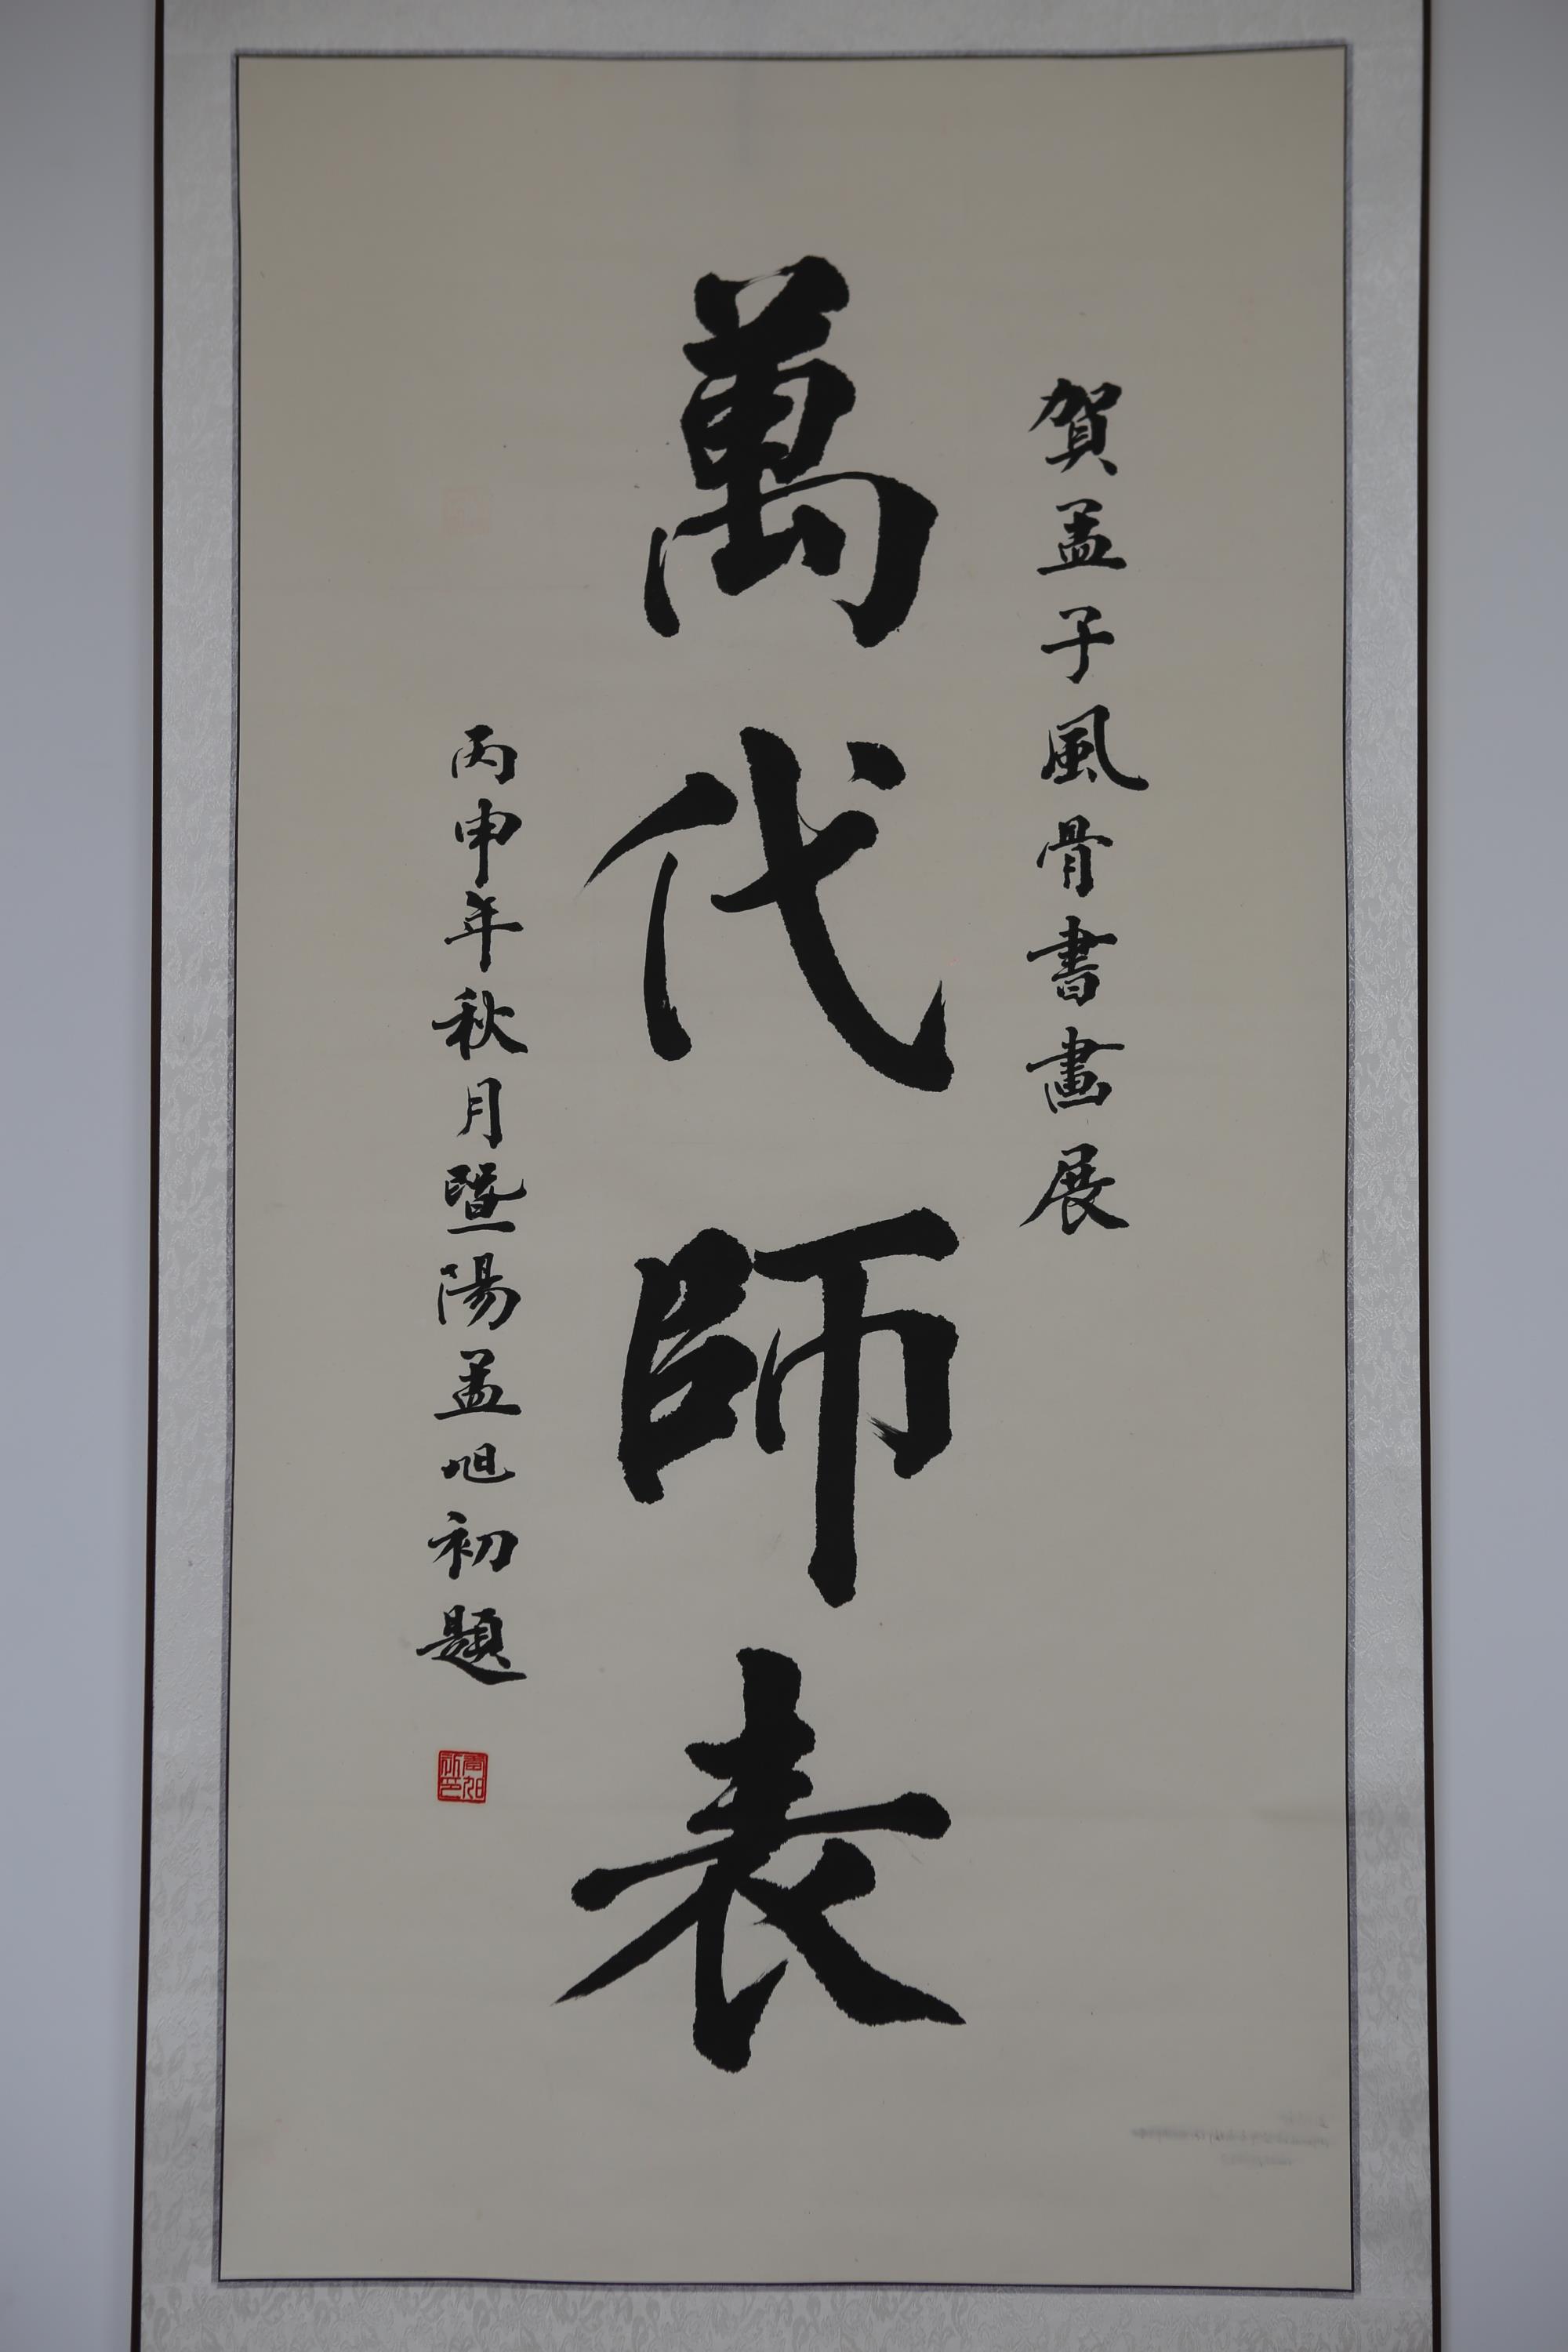 賀孟子風骨書畫展
萬代師表
丙申年秋月暨陽孟旭初題